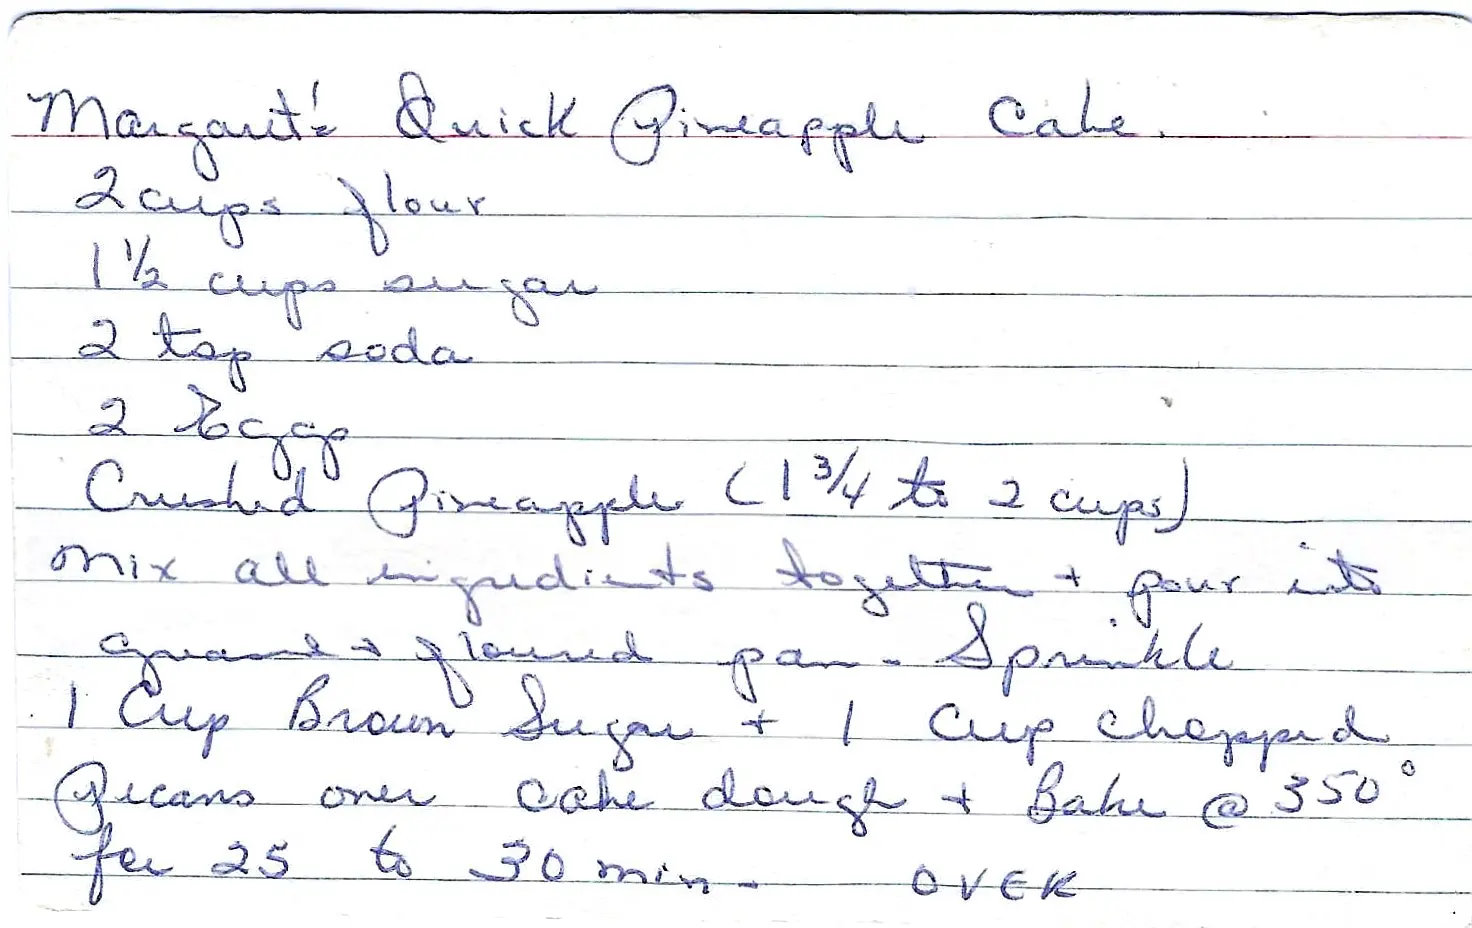 Margaret's Quick Pineapple Cake.
2 cups flour
1 1/2 cups sugar
2 tsp soda
2 Eggs
Crushed Pineapple (1 3/4 to 2 cups)
Mix all ingredients together + pour into
greased + floured pan - Sprinkle
1 Cup Brown Sugar + 1 Cup chopped
Pecans over cake dough + Bake @ 350°
for 25 to 30 min - OVER